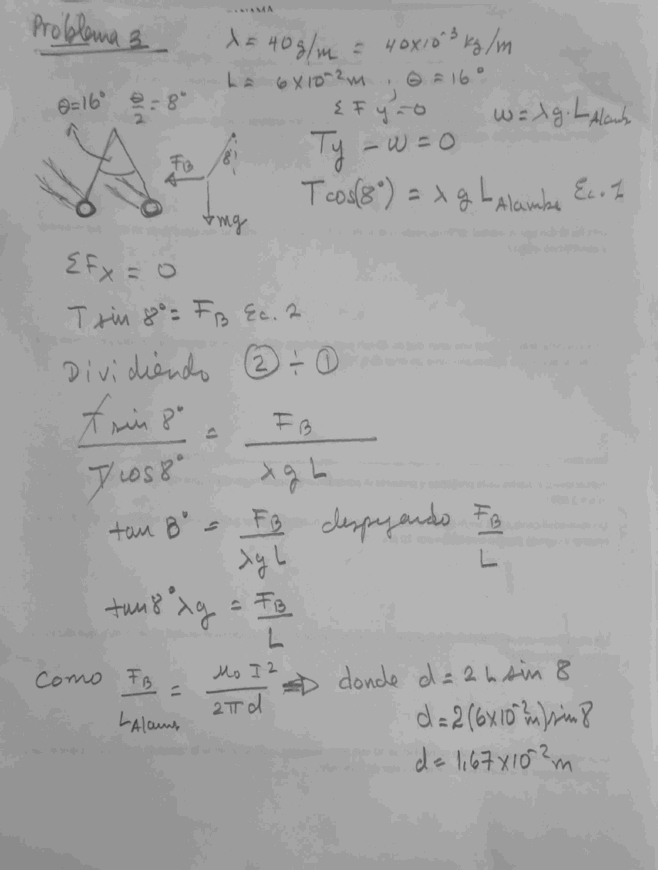 Problema 3
λ = 40g/m = 40x10⁻³ kg/m
L = 6x10⁻² m , θ = 16°
θ=16° θ/2 = 8°
Σ Fy = 0
w = λg·L Alamb
Ty - w = 0
FB
8°
mg
Tcos(8°) = λ g L Alambre Ec. 1
ΣFx = 0
T sin 8° = FB Ec. 2
Dividiendo ② ÷ ①
T sin 8° / T cos 8° = FB / λ g L
tan 8° = FB / λg L despejando FB / L
tan 8° λg = FB / L
Como FB / L Alamb = μ0 I² / 2πd ⇒ donde d = 2 L sin 8
d = 2(6x10⁻² m) sin 8
d = 1,67x10⁻² m